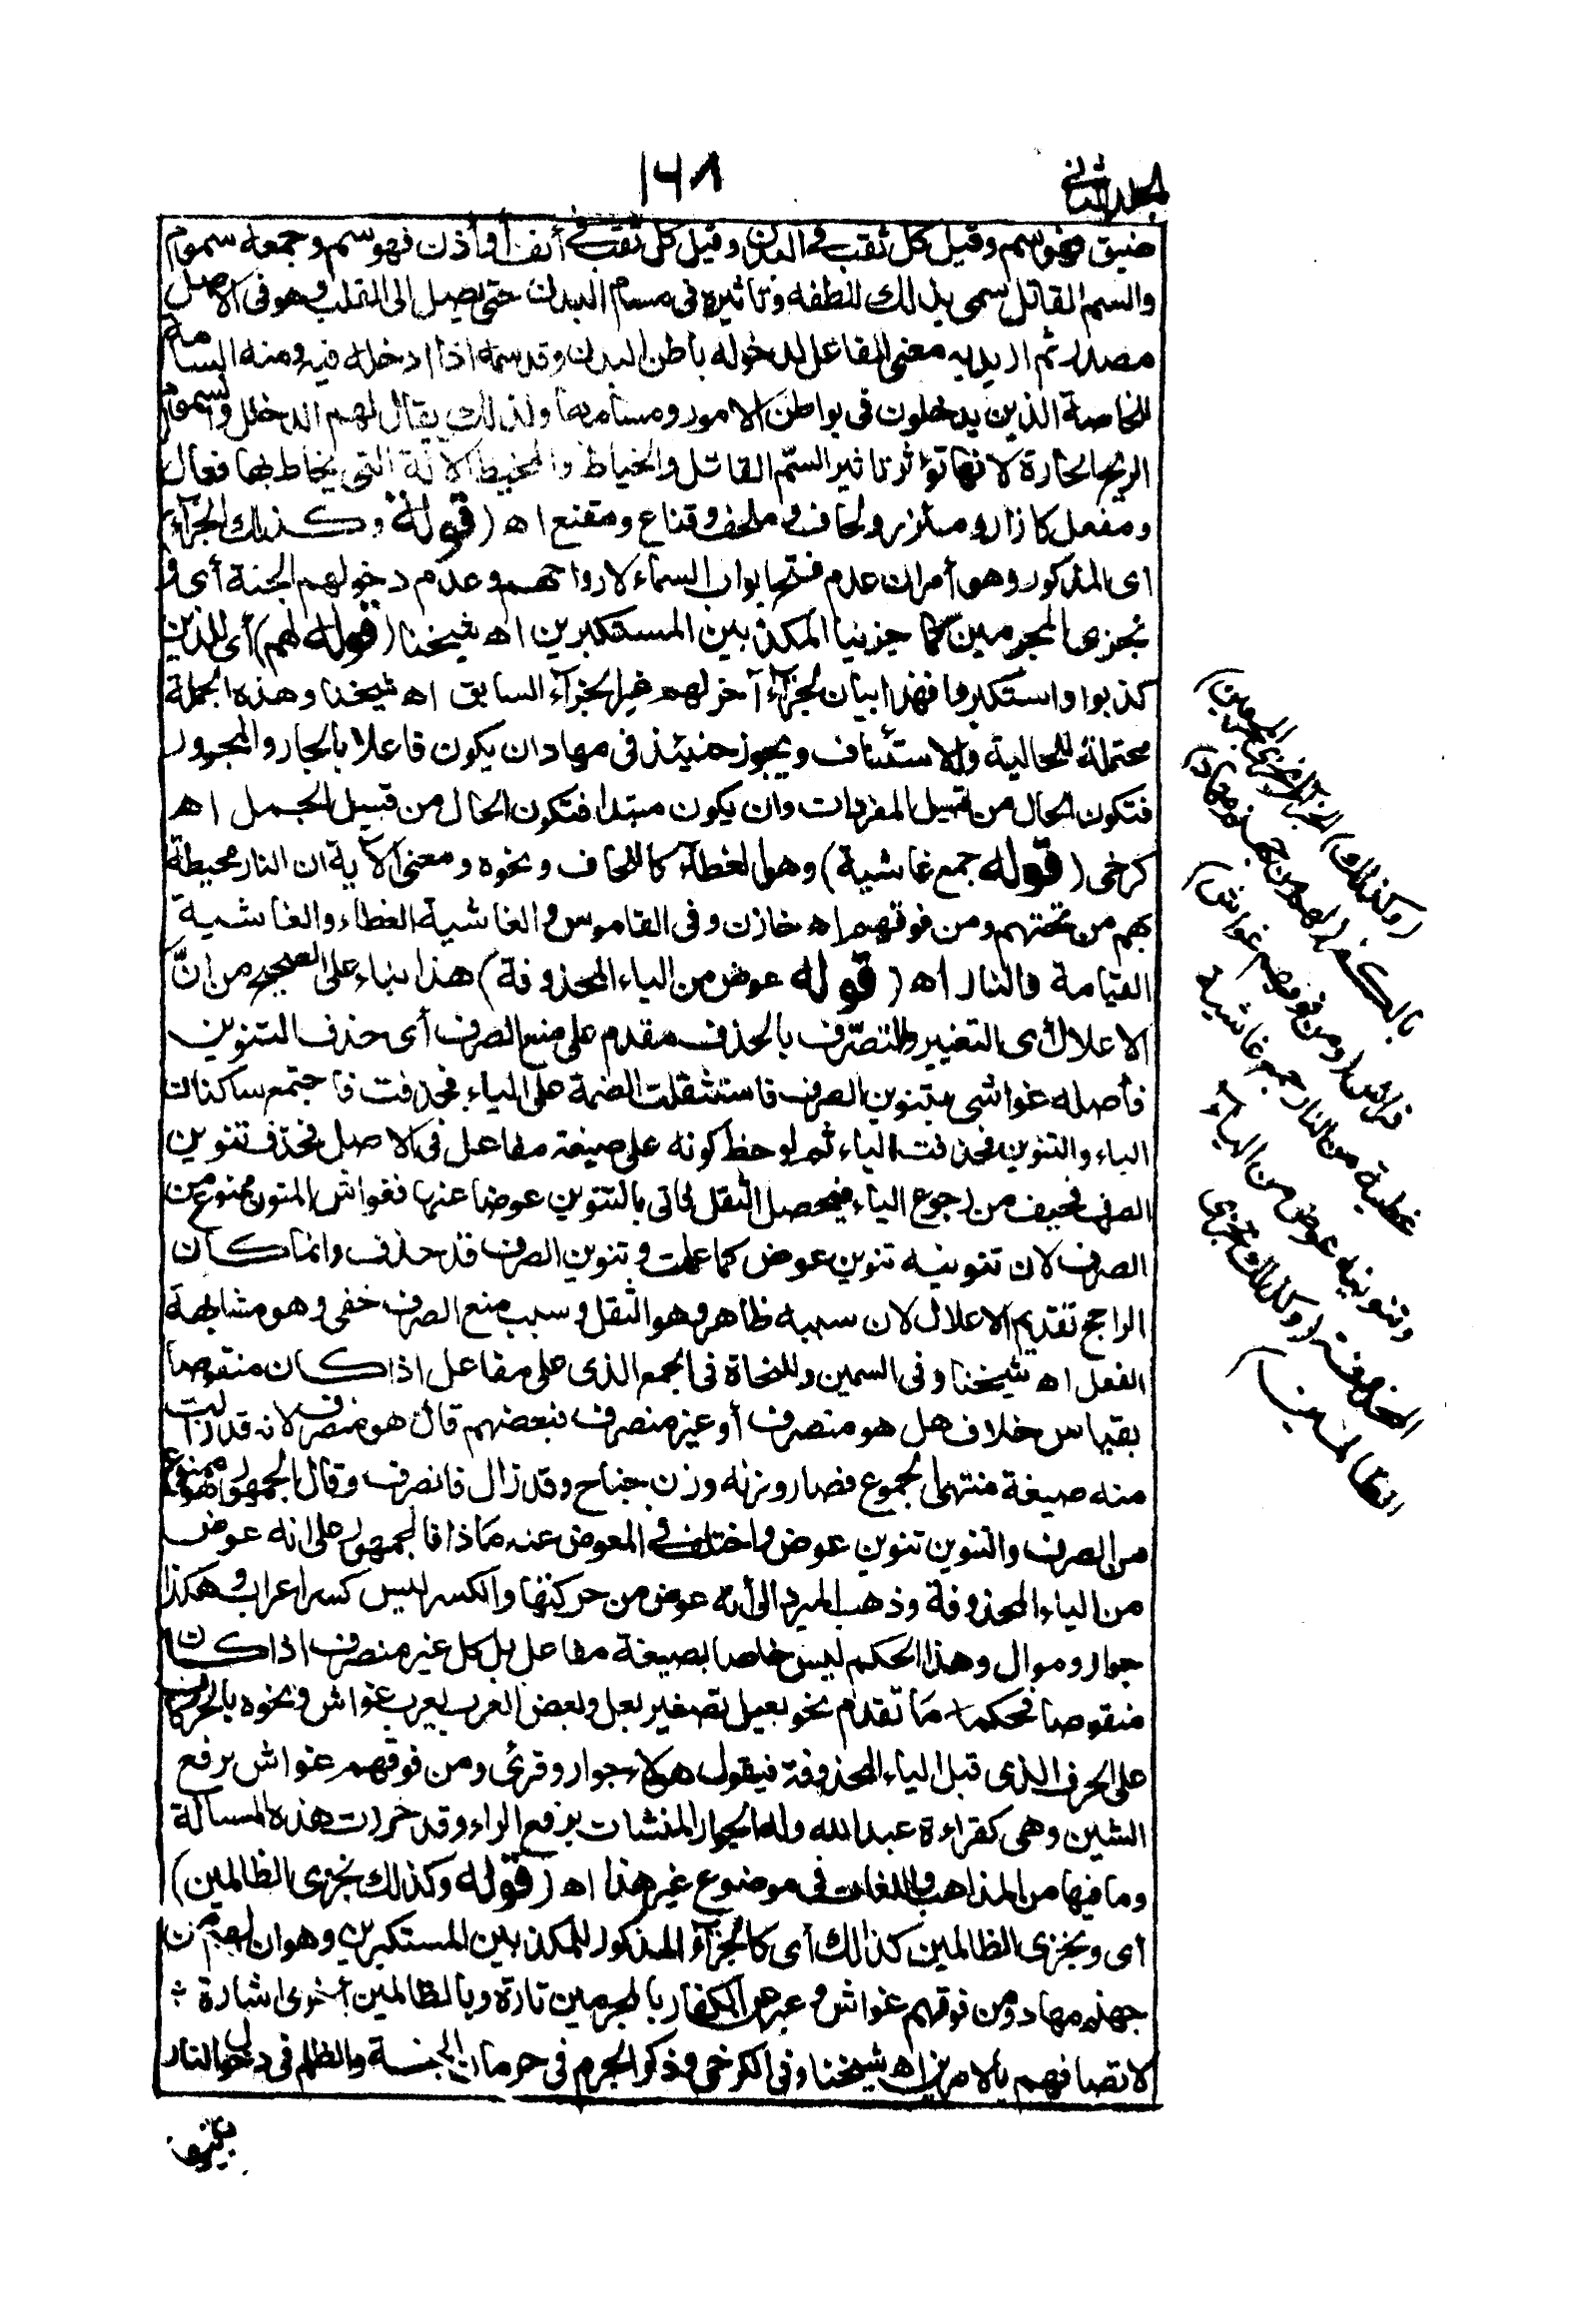 المجلد الثاني
١٦٨
ضيق فهو سم وقيل كل ثقب في البدن وقيل كل ثقب في أنف أو أذن فهو سم وجمعه سموم
والسم القاتل سمى بذلك للطفه وتاثيره في مسام البدن حتى يصل الى القلب وهو في الاصل
مصدر ثم اريد به معنى الفاعل لدخوله باطن البدن وقد سمه اذا ادخله فيه ومنه السامة
للخاصة الذين يدخلون في بواطن الامور ومسامها ولذلك يقال لهم الدخلل والسموم
الريح الحارة لانها تؤثر تاثير السمّ القاتل والخياط والمخيط الآلة التي يخاط بها فعال
ومفعل كازار ومئزر ولحاف وملحف وقناع ومقنع اه (قوله وكذلك الجزاء)
اى المذكور وهو أمران عدم فتح ابواب السماء لارواحهم وعدم دخولهم الجنة أى و
نجزى المجرمين كما جزينا المكذبين المستكبرين اه شيخنا (قوله لهم) أى للذين
كذبوا واستكبروا فهذا بيان لجزاء آخر لهم غير الجزاء السابق اه شيخنا وهذه الجملة
محتملة للحالية والاستئناف ويجوز حينئذ في مهاد ان يكون فاعلا بالجار والمجرور
فتكون الحال من قبيل المفردات وان يكون مبتدا فتكون الحال من قبيل الجمل اه
كرخى (قوله جمع غاشية) وهى الغطاء كاللحاف ونحوه ومعنى الآية ان النار محيطة
بهم من تحتهم ومن فوقهم اه خازن وفي القاموس والغاشية الغطاء والغاشية
القيامة والنار اه (قوله عوض من الياء المحذوفة) هذا بناء على الصحيح من انَّ
الاعلال أى التغيير والتصرّف بالحذف مقدم على منع الصرف أى حذف التنوين
فأصله غواشى بتنوين الصرف فاستثقلت الضمة على الياء فحذفت فاجتمع ساكنان
الياء والتنوين فحذفت الياء ثم لوحظ كونه على صيغة مفاعل في الاصل فحذف تنوين
الصرف فخيف من رجوع الياء فيحصل الثقل فاتى بالتنوين عوضا عنها فغواش المنون ممنوع من
الصرف لان تنوينه تنوين عوض كما علمت وتنوين الصرف قد حذف وانما كان
الراجح تقديم الاعلال لان سببه ظاهر وهو الثقل وسبب منع الصرف خفى وهو مشابهة
الفعل اه شيخنا وفي السمين وللنحاة في الجمع الذى على مفاعل اذا كان منقوصا
بقياس خلاف هل هو منصرف أو غير منصرف فبعضهم قال هو منصرف لانه قد زالت
منه صيغة منتهى الجموع فصار وزنه وزن جناح وقد زال فانصرف وقال الجمهور هو ممنوع
من الصرف والتنوين تنوين عوض واختلف في المعوض عنه ماذا فالجمهور على انه عوض
من الياء المحذوفة وذهب المبرد الى أنه عوض من حركتها والكسر ليس كسر اعراب وهكذا
جوار وموال وهذا الحكم ليس خاصا بصيغة مفاعل بل كل غير منصرف اذا كان
منقوصا فحكمه ما تقدم نحو يعيل تصغير يعل وبعض العرب يعرب غواش ونحوه بالحركات
على الحرف الذى قبل الياء المحذوفة فيقول هولاء جوار وقرئ ومن فوقهم غواش برفع
الشين وهى كقراءة عبدالله وله الجوار المنشات برفع الراء وقد حررت هذه المسالة
وما فيها من المذاهب واللغات في موضوع غير هذا اه (قوله وكذلك نجزى الظالمين)
أى ونجزى الظالمين كذلك أى كالجزاء المذكور للمكذبين المستكبرين وهو ان لهم من
جهنم مهاد ومن فوقهم غواش وعبر عن الكفار بالمجرمين تارة وبالظالمين أخرى اشارة
لاتصافهم بالامرين اه شيخنا وفي الكرخى وذكر الجرم في حرمان الجنة والظلم في دخول النار
(وكذلك) الجزاء (نجزى المجرمين)
بالكفر (لهم من جهنم مهاد)
فراش (ومن فوقهم غواش)
أغطية من النار جمع غاشية
وتنوينه عوض من الياء
المحذوفة (وكذلك نجزى
الظالمين)